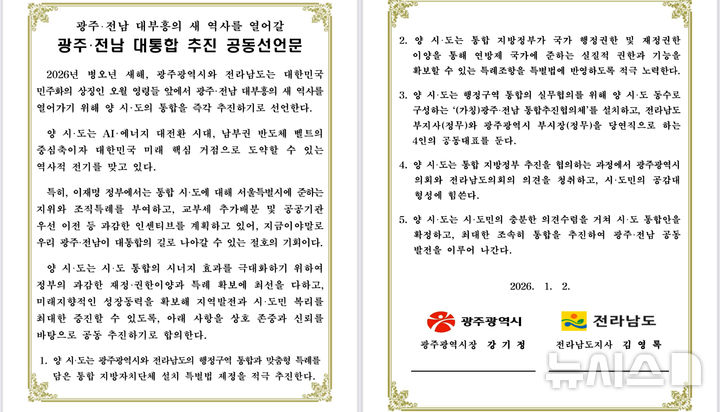 광주·전남 대부흥의 새 역사를 열어갈
광주·전남 대통합 추진 공동선언문
2026년 병오년 새해, 광주광역시와 전라남도는 대한민국
민주화의 상징인 오월 영령들 앞에서 광주·전남 대부흥의 새 역사를
열어가기 위해 양 시·도의 통합을 즉각 추진하기로 선언한다.
양 시·도는 AI·에너지 대전환 시대, 남부권 반도체 벨트의
중심축이자 대한민국 미래 핵심 거점으로 도약할 수 있는
역사적 전기를 맞고 있다.
특히, 이재명 정부에서는 통합 시·도에 대해 서울특별시에 준하는
지위와 조직특례를 부여하고, 교부세 추가배분 및 공공기관
우선 이전 등 과감한 인센티브를 계획하고 있어, 지금이야말로
우리 광주·전남이 대통합의 길로 나아갈 수 있는 절호의 기회이다.
양 시·도는 시·도 통합의 시너지 효과를 극대화하기 위하여
정부의 과감한 재정·권한이양과 특례 확보에 최선을 다하고,
미래지향적인 성장동력을 확보해 지역발전과 시·도민 복리를
최대한 증진할 수 있도록, 아래 사항을 상호 존중과 신뢰를
바탕으로 공동 추진하기로 합의한다.
1. 양 시·도는 광주광역시와 전라남도의 행정구역 통합과 맞춤형 특례를
담은 통합 지방자치단체 설치 특별법 제정을 적극 추진한다.
2. 양 시·도는 통합 지방정부가 국가 행정권한 및 재정권한
이양을 통해 연방제 국가에 준하는 실질적 권한과 기능을
확보할 수 있는 특례조항을 특별법에 반영하도록 적극 노력한다.
3. 양 시·도는 행정구역 통합의 실무협의를 위해 양 시·도 동수로
구성하는 ‘(가칭)광주·전남 통합추진협의체’를 설치하고, 전라남도
부지사(정무)와 광주광역시 부시장(정무)을 당연직으로 하는
4인의 공동대표를 둔다.
4. 양 시·도는 통합 지방정부 추진을 협의하는 과정에서 광주광역시
의회와 전라남도의회의 의견을 청취하고, 시·도민의 공감대
형성에 힘쓴다.
5. 양 시·도는 시·도민의 충분한 의견수렴을 거쳐 시·도 통합안을
확정하고, 최대한 조속히 통합을 추진하여 광주·전남 공동
발전을 이루어 나간다.
2026. 1. 2.
광주광역시 전라남도
광주광역시장 강기정 전라남도지사 김영록
뉴시스